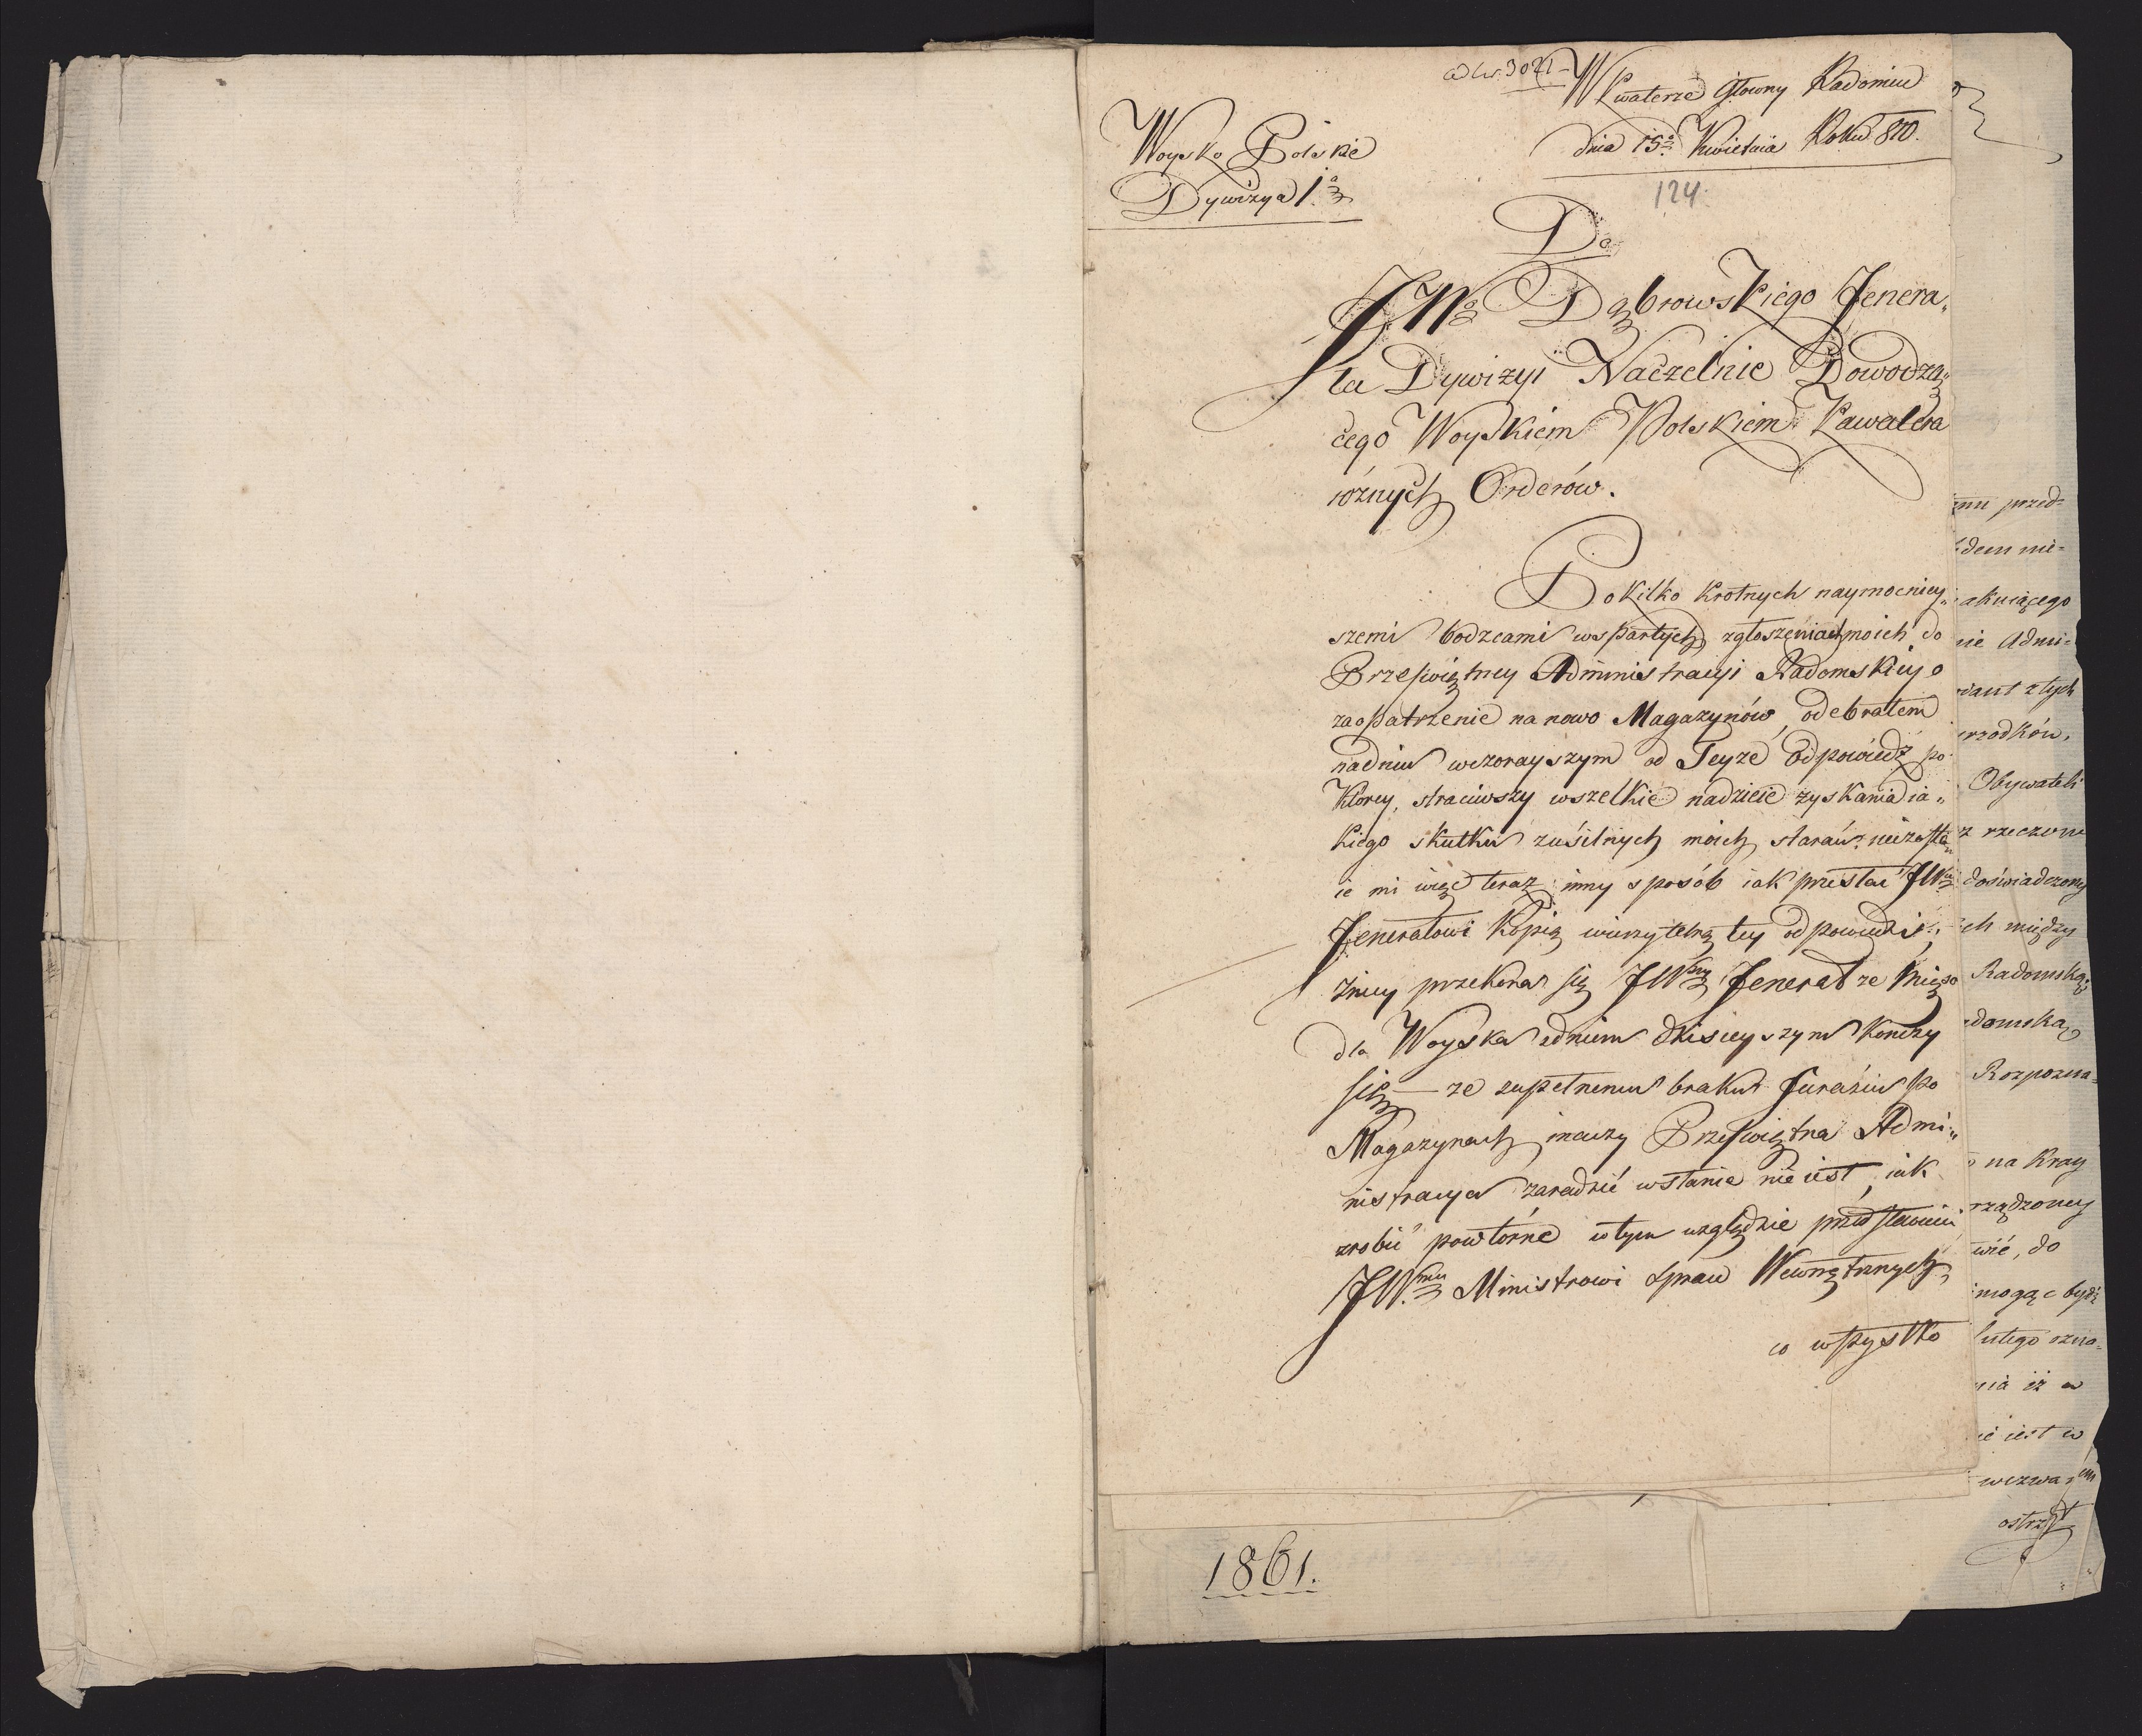 W Kwaterze Głowny Radomiu
dnia 15º Kwietnia Roku 810.
Woysko Polskie
Dywizya 1ª
124.
Do
JWº Dąbrowskiego Jenera„
ła Dywizyi Naczelnie Dowodzą„
cego Woyskiem Polskiem Kawalera
różnych Orderów.
Po kilko krotnych naymocniey„
szemi bodzcami wspartych zgłoszeniach moich do
Przeświętney Administracyi Radomskiey o
zaopatrzenie na nowo Magazynów, odebrałem
na dniu wczorayszym od Teyże Odpowiedź po
ktorey, straciwszy wszelkie nadzieie zyskania ia„
kiego skutku z usilnych moich starań: niezosta„
ie mi więc teraz inny sposób iak przesłać JWu
Jenerałowi Kopią wierzytelną tey odpowiedzi:
zniey przekona się JWny Jenerał ze Mięso
dla Woyska z dniem dzisieyszym kończy
się — ze zupełnemu braku furażu po
Magazynach inaczy Prześwietna Admi„
nistracya zaradzić w stanie nie iest, iak
zrobić powtórne w tym względzie przedstawienie
JW.mu Ministrowi Spraw Wewnętrznych,
co wszystko
1861.
mu przed=
dem nie=
akuiącego
nie Admi=
iant z tych
rzodków,
Obywateli
z rzeczone
doświadczony
ch między
Radomską
domską
Rozpozna=
na Kray
rządzoney
wić, do
mogąc bydź
Lutego ozna=
nia iż w
ie iest w
wezwa
ostrz